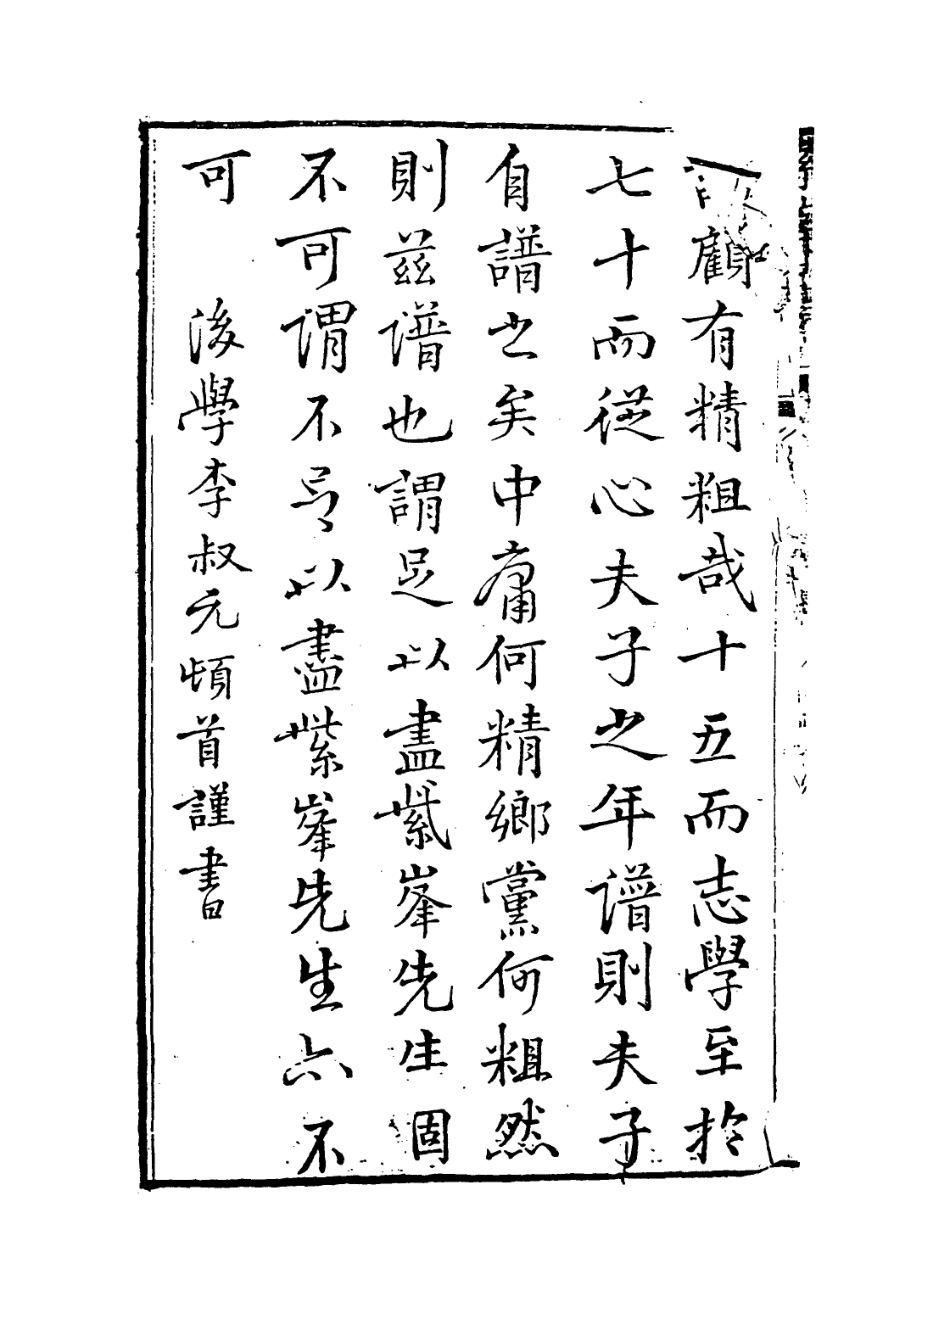 顧有精粗哉十五而志學至於
七十而從心夫子之年譜則夫子
自譜之矣中庸何精鄉黨何粗然
則茲譜也謂足以盡紫峯先生固
不可謂不足以盡紫峯先生亦不
可　後學李叔元頓首謹書